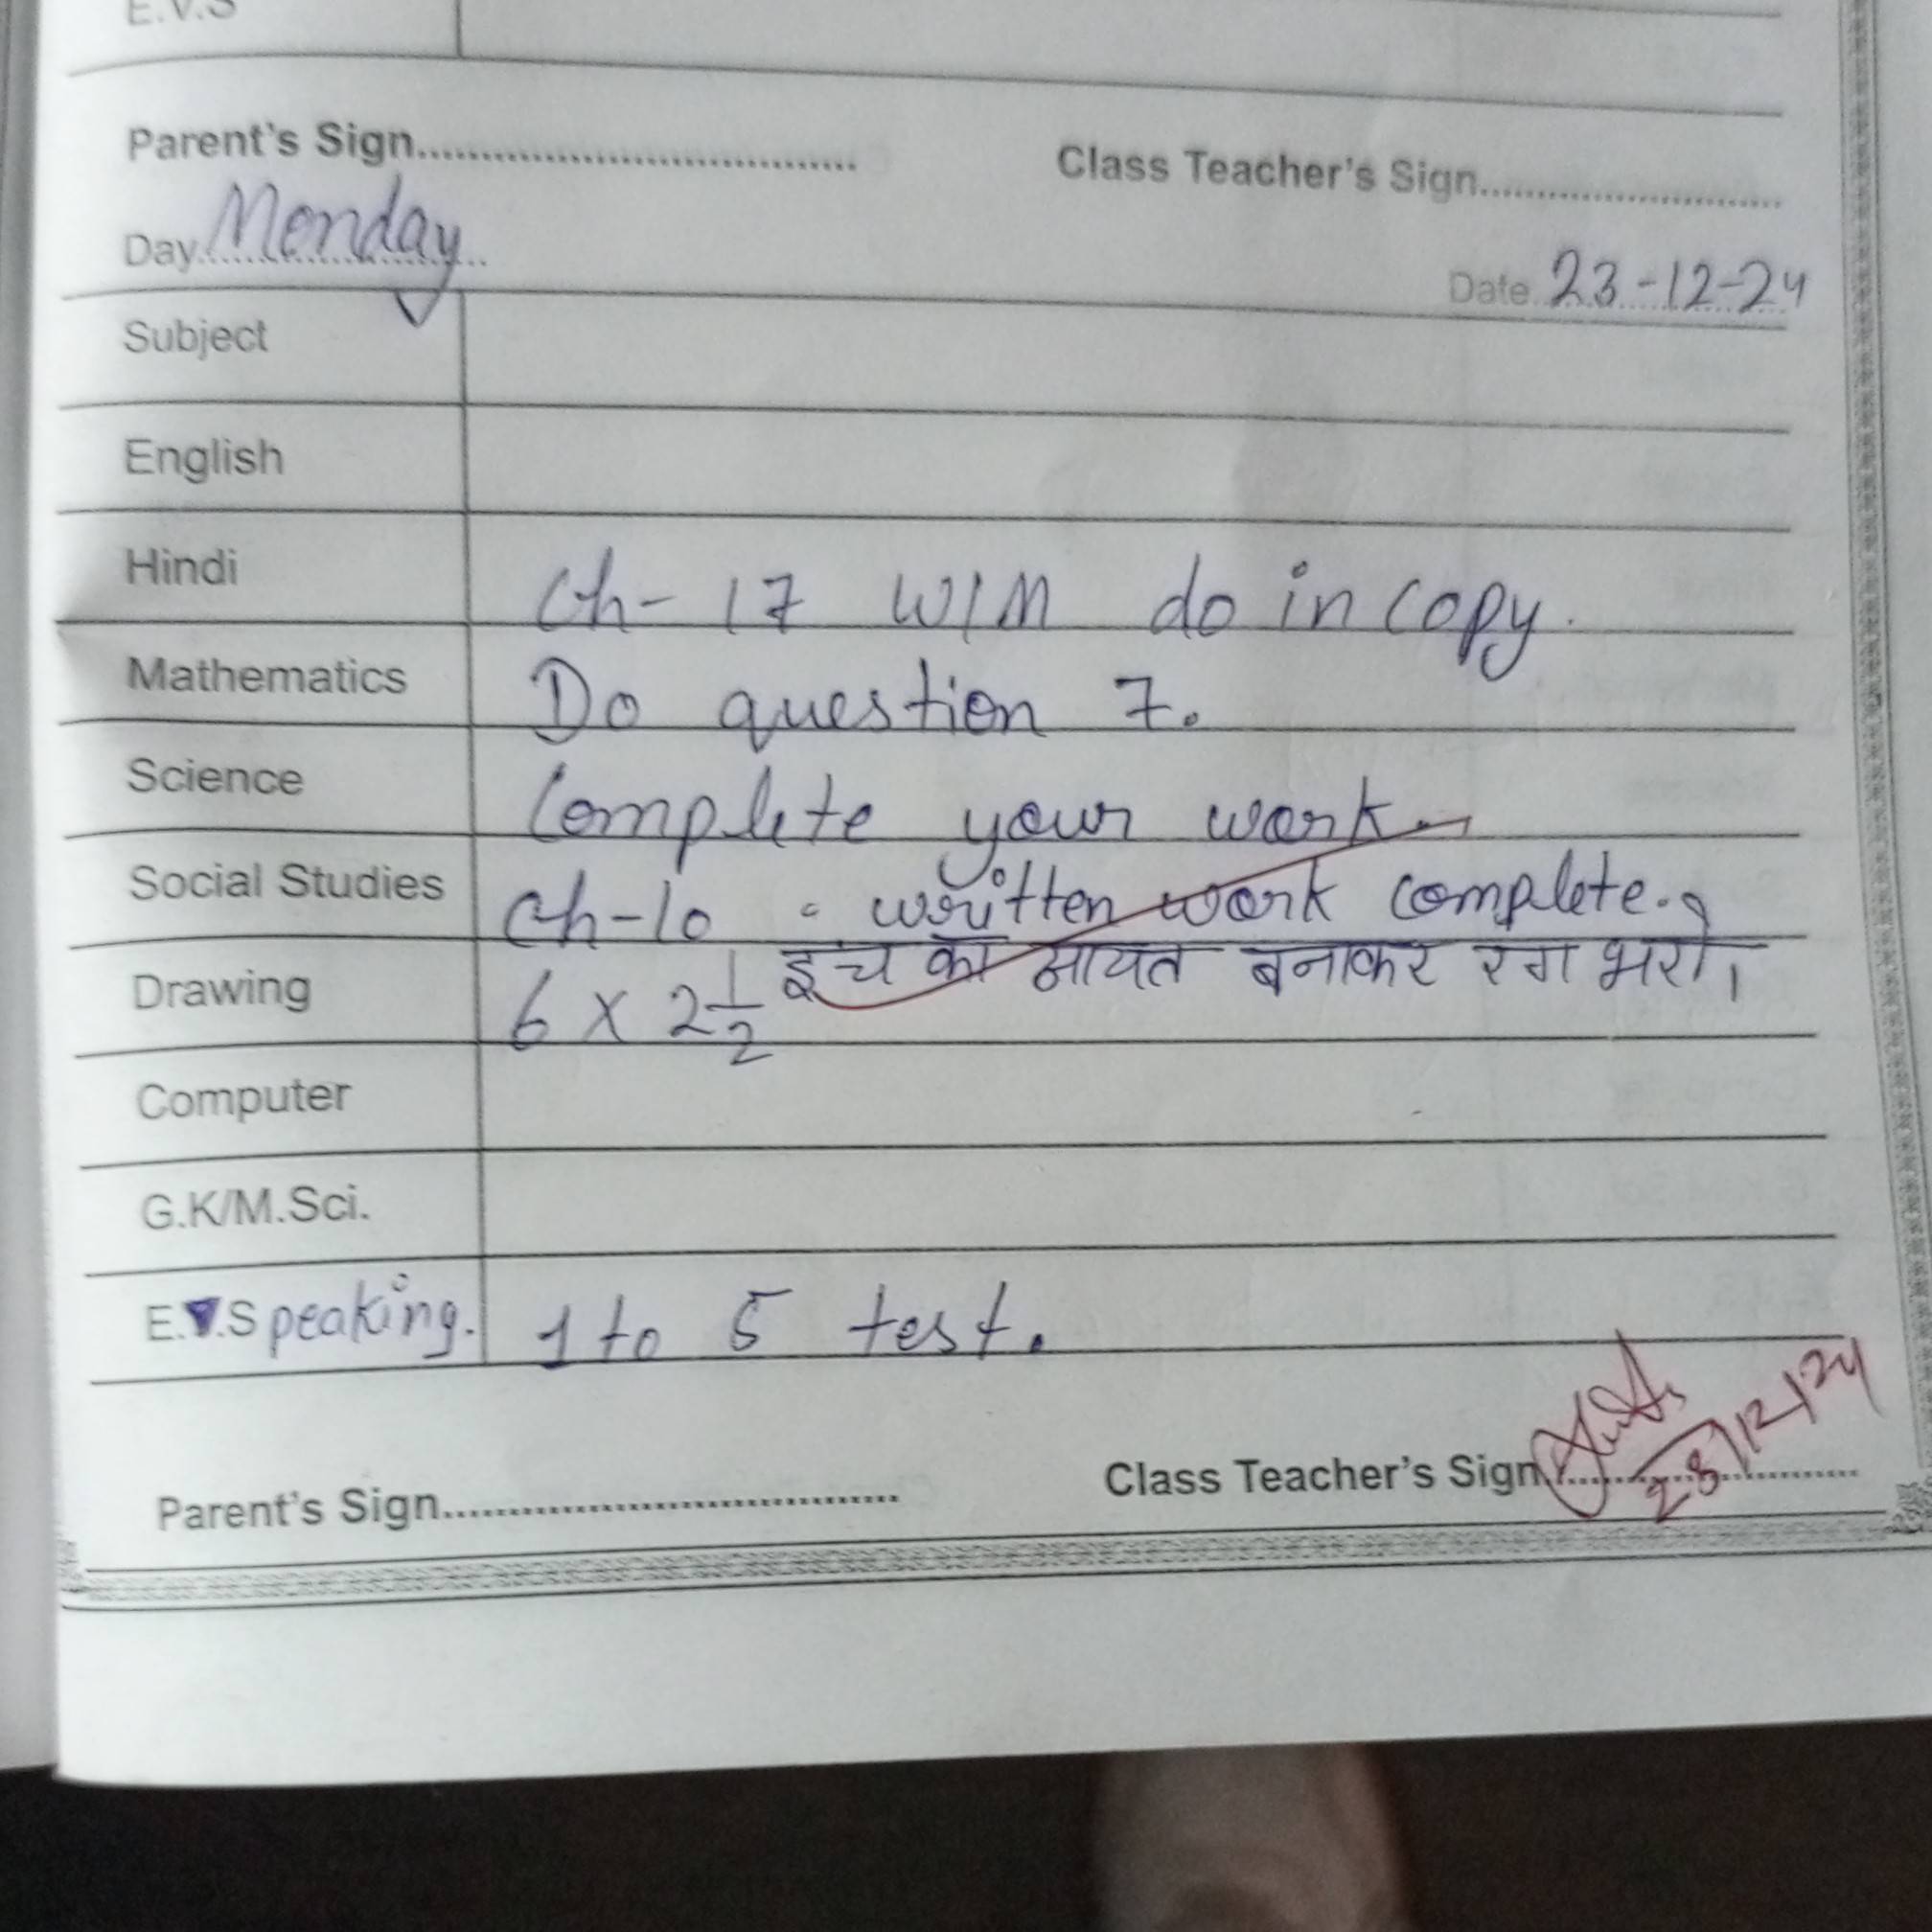 E.V.S
Parent's Sign........................................ Class Teacher's Sign............................
Day Monday
Date 23-12-24
Subject
English
Hindi Ch- 17 W/M do in copy.
Mathematics Do question 7.
Science Complete your work.
Social Studies Ch-10 written work complete.
Drawing 6 x 2 1/2 इंच का आयत बनाकर रंग भरो।
Computer
G.K/M.Sci.
E.V.Speaking. 1 to 5 test.
Parent's Sign........................................ Class Teacher's Sign............................
23/12/24